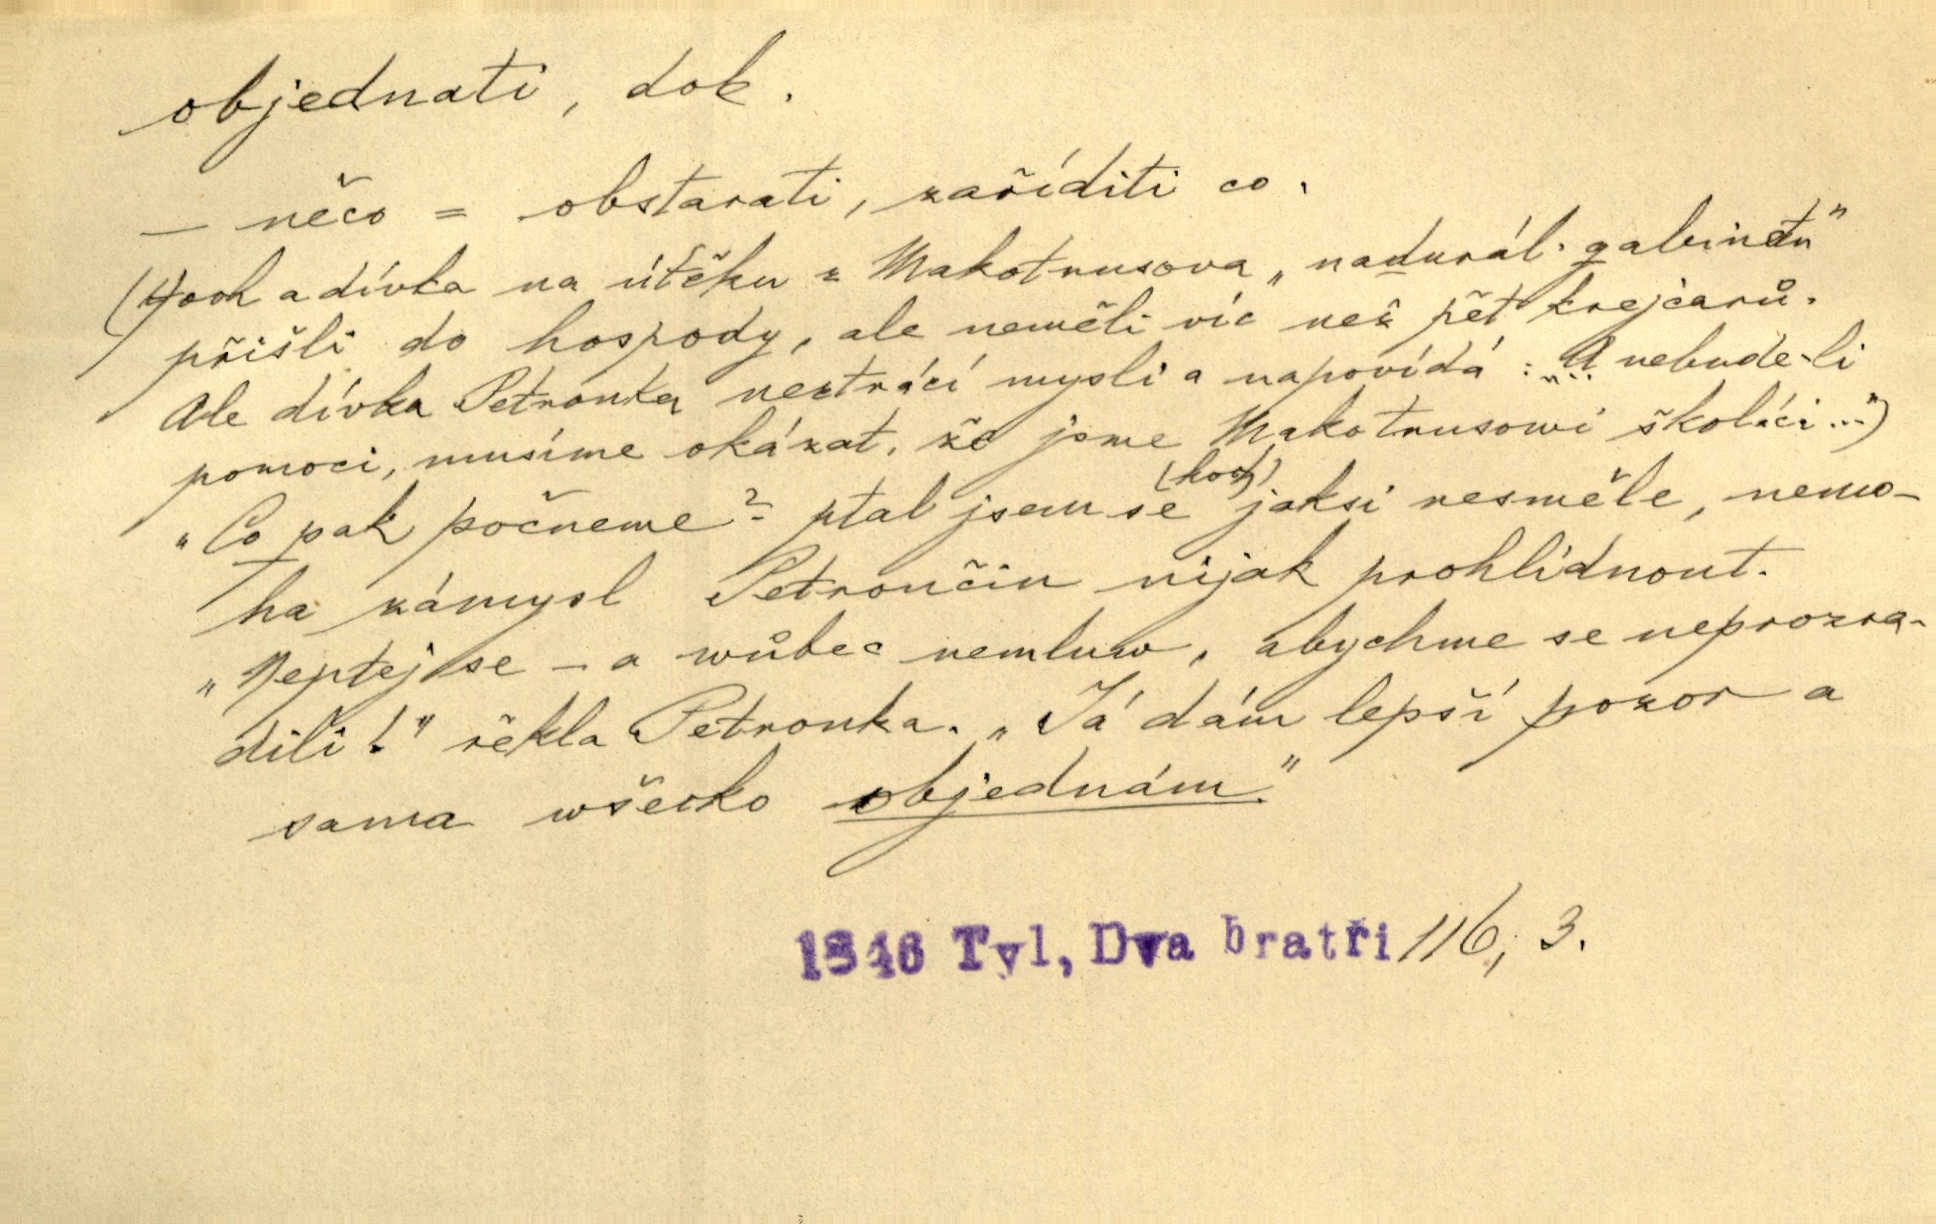 objednati, dok.
— něco = obstarati, zaříditi co.
(Hoch a dívka na útěku z Makotrusova „nadurál. gabinetu"
přišli do hospody, ale neměli víc než pět krejcarů.
Ale dívka Petronka neztrácí mysli a napovídá: „... A nebude-li
pomoci, musíme okázat, že jsme Makotrusowi školáci...")
„Co pak počneme? ptal jsem se (hoch) jaksi nesměle, nemo-
ha zámysl Petrončin nijak prohlídnout.
„Neptej se – a wůbec nemluw, abychme se neprozra-
dili!" řekla Petronka. „Já dám lepší pozor a
sama wšecko objednám."
1846 Tyl, Dva bratři 116, 3.